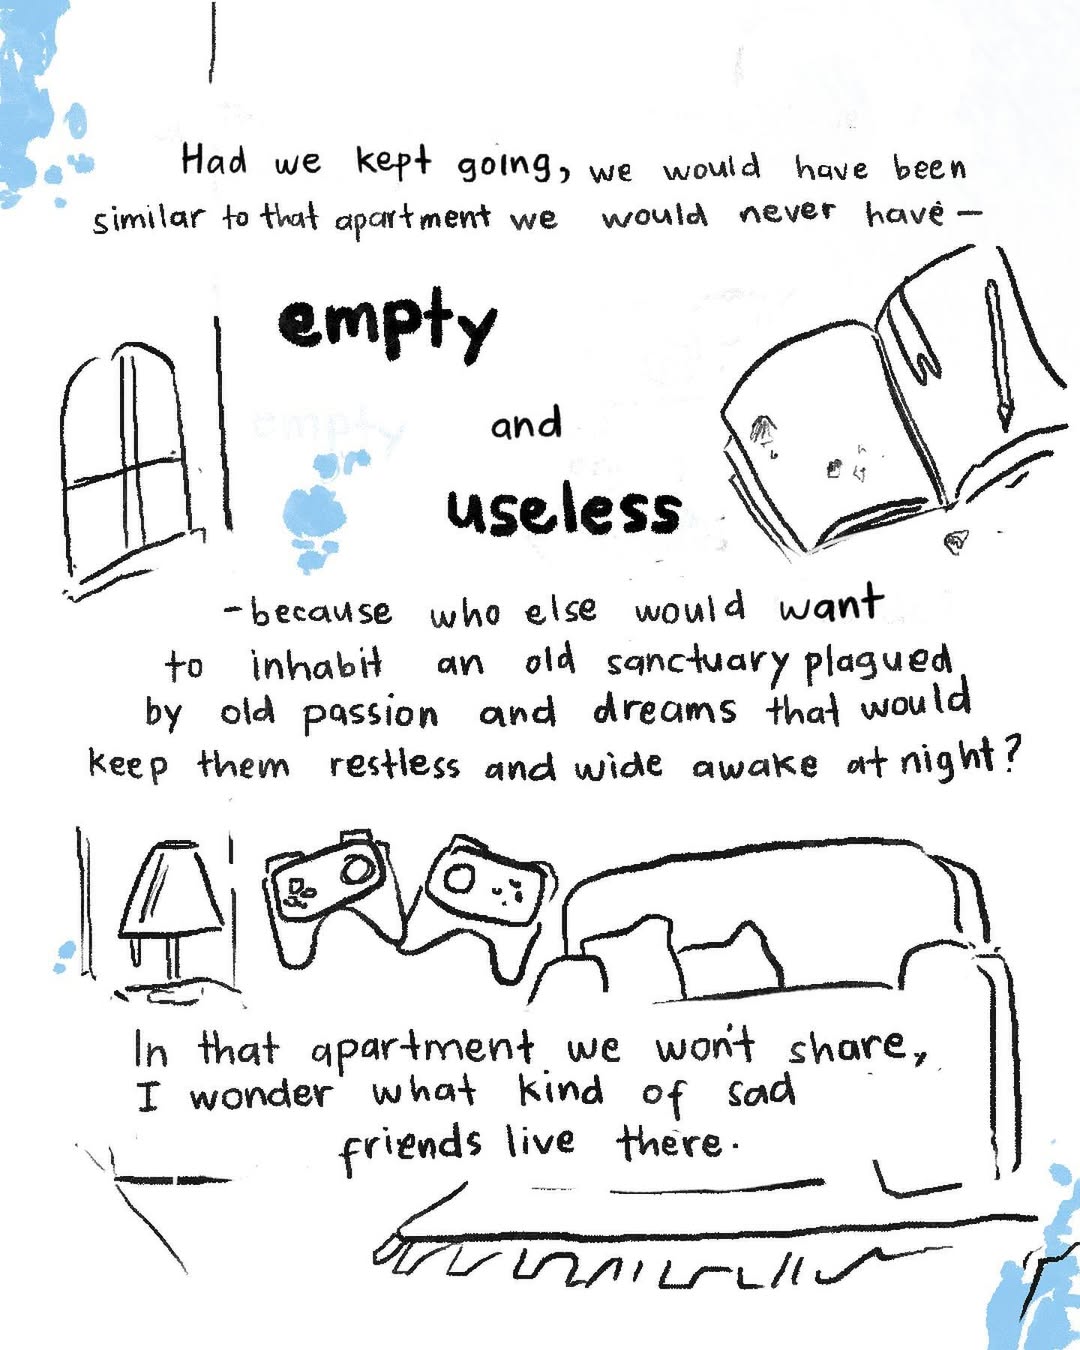 Had we kept going, we would have been
similar to that apartment we would never have —
empty
and
useless
- because who else would want
to inhabit an old sanctuary plagued
by old passion and dreams that would
keep them restless and wide awake at night?
In that apartment we won't share,
I wonder what kind of sad
friends live there.